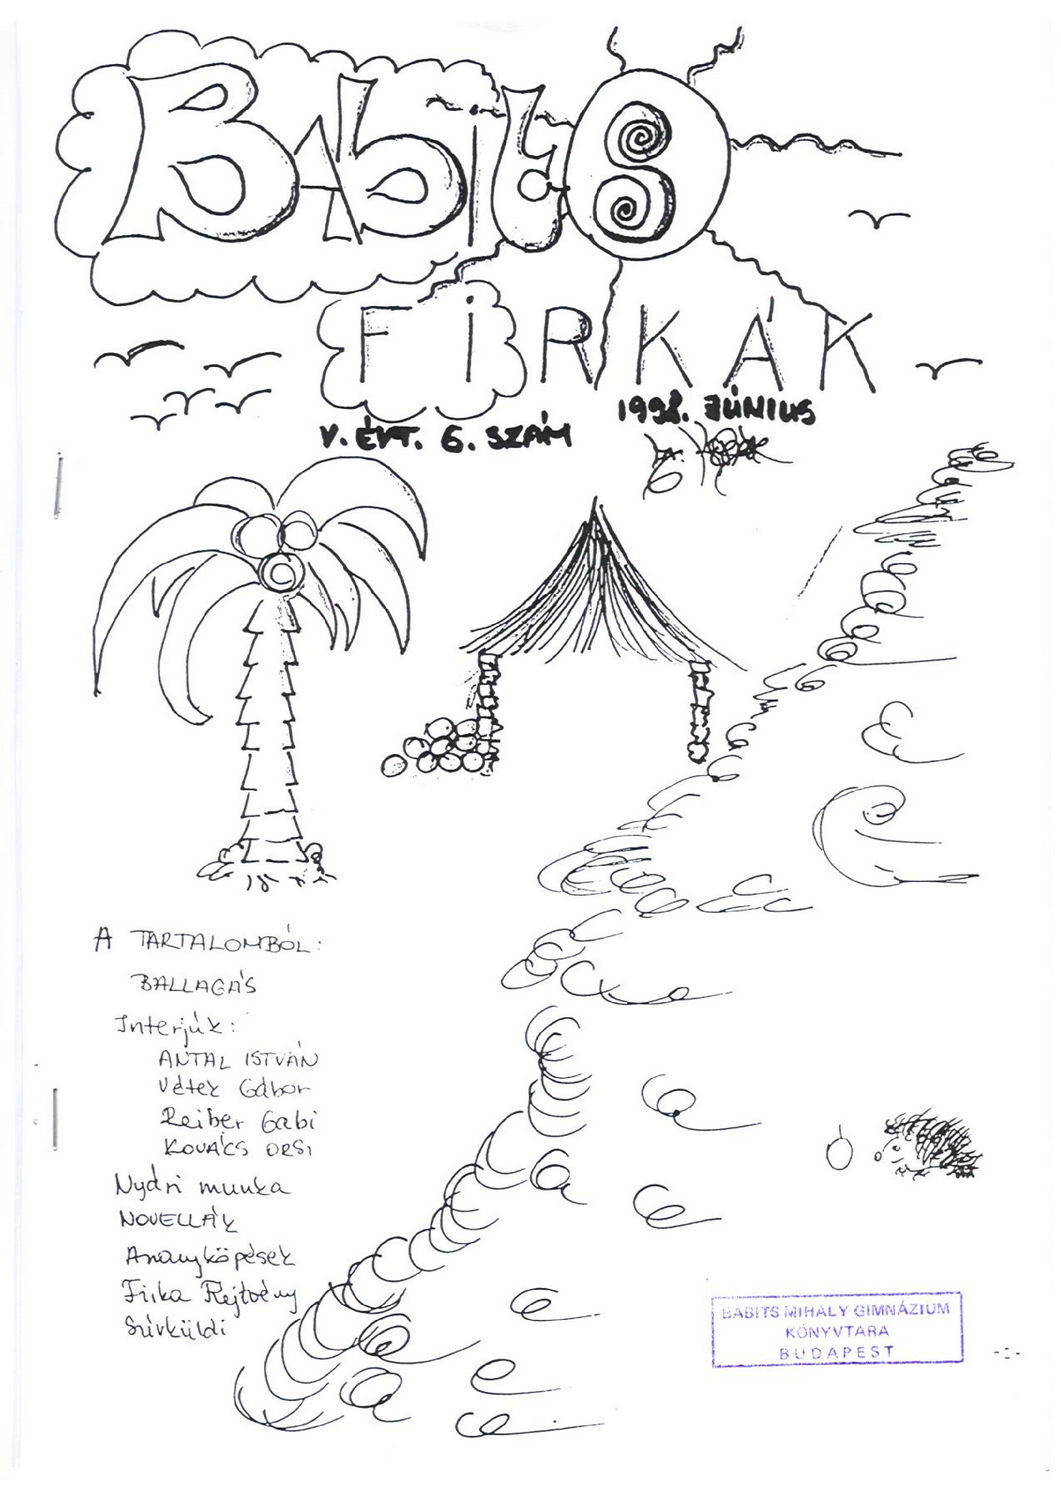 BABITS
FIRKÁK
V. ÉVF. 6. SZÁM
1998. JÚNIUS
A TARTALOMBÓL:
BALLAGÁS
Interjúk:
ANTAL ISTVÁN
Vétek Gábor
Reiber Gabi
KOVÁCS ORSI
Nyári munka
NOVELLÁK
Aranyköpések
Firka Rejtvény
Szívküldi
BABITS MIHÁLY GIMNÁZIUM
KÖNYVTARA
BUDAPEST